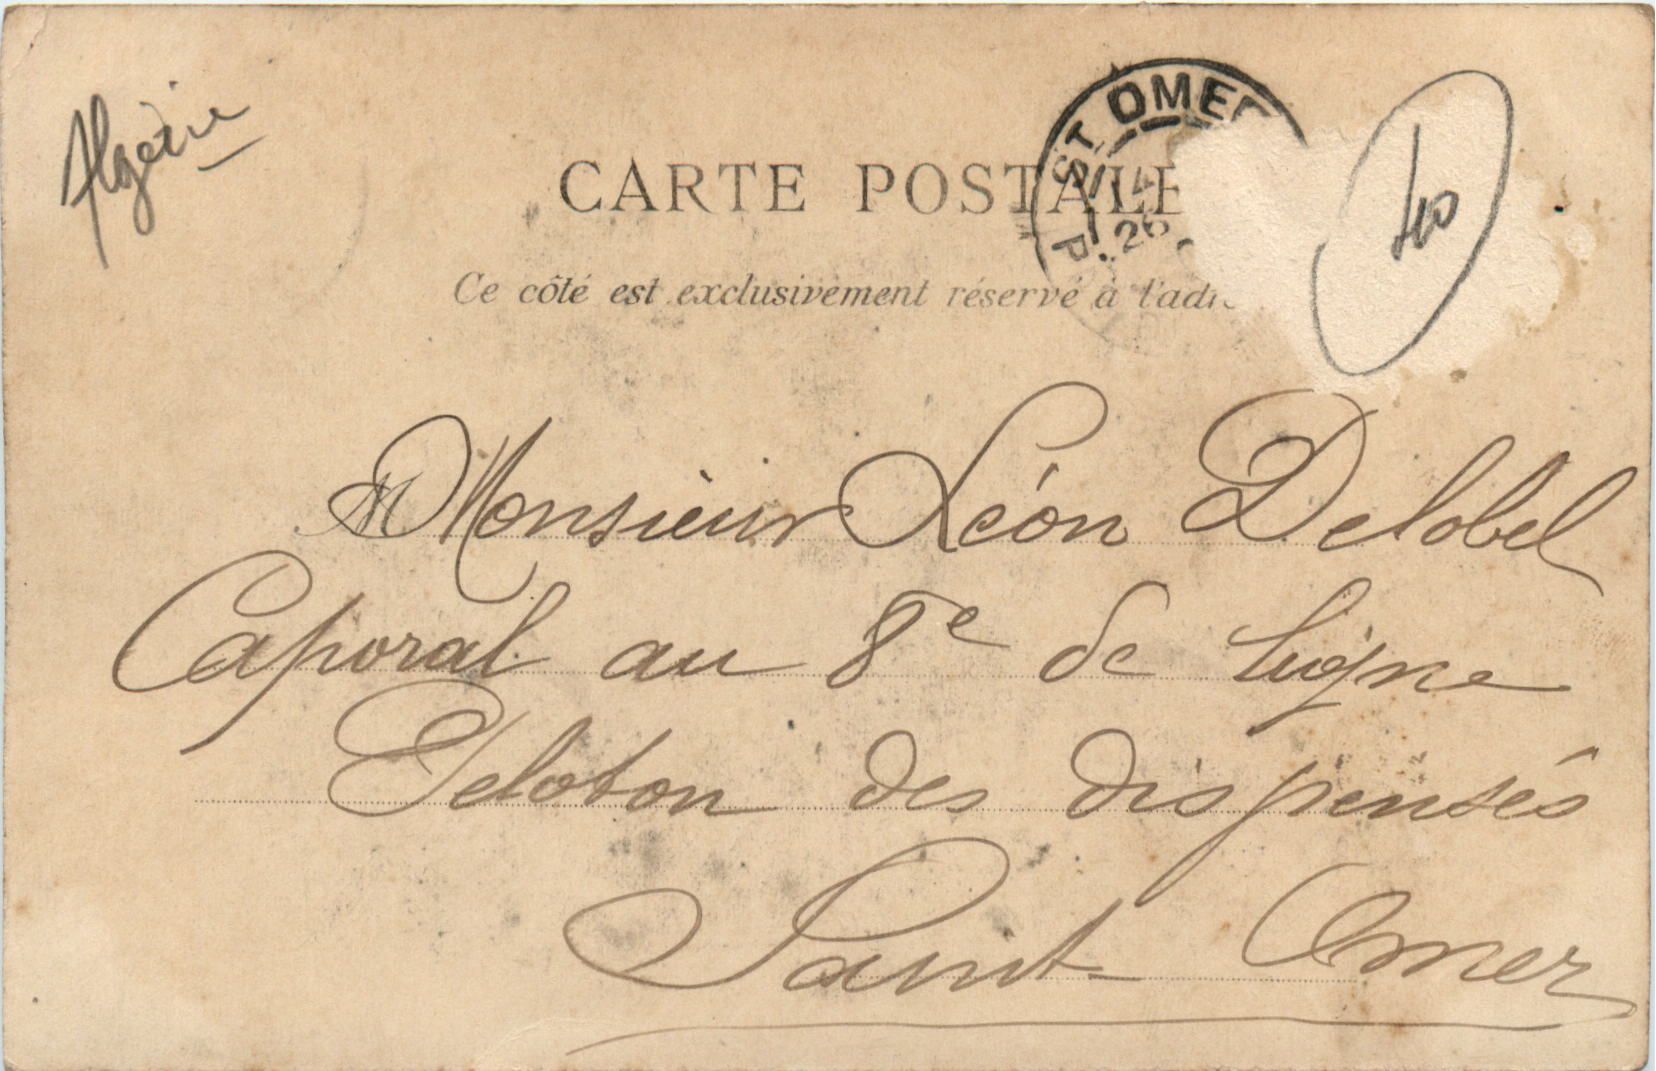 Algérie
ST OMER
CARTE POSTALE
26
40
Ce côté est exclusivement réservé à l'adre
Monsieur Léon Delobel
Caporal au 8e de ligne
Peloton des dispensés
Saint Omer